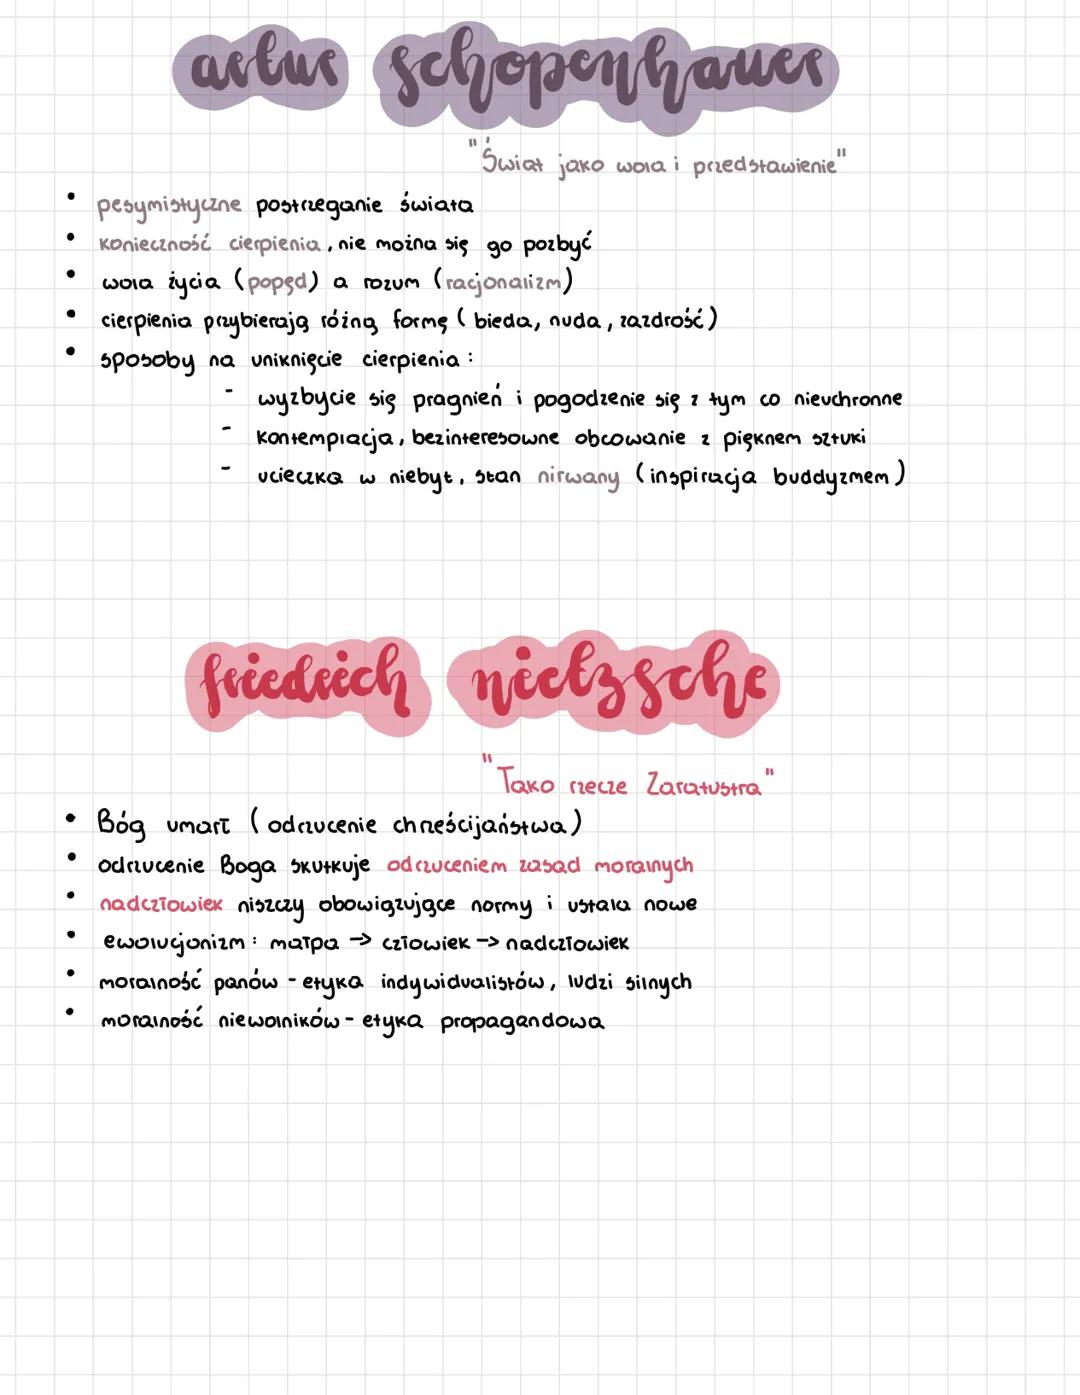 artur schopenhauer
"Świat jako wola i przedstawienie"
• pesymistyczne postrzeganie świata
• konieczność cierpienia, nie można się go pozbyć
• wola życia (popęd) a rozum (racjonalizm)
• cierpienia przybierają różną formę (bieda, nuda, zazdrość)
• sposoby na uniknięcie cierpienia:
- wyzbycie się pragnień i pogodzenie się z tym co nieuchronne
- kontemplacja, bezinteresowne obcowanie z pięknem sztuki
- ucieczka w niebyt, stan nirwany (inspiracja buddyzmem)
friedrich nietzsche
"Tako rzecze Zaratustra"
• Bóg umarł (odrzucenie chrześcijaństwa)
• odrzucenie Boga skutkuje odrzuceniem zasad moralnych
• nadczłowiek niszczy obowiązujące normy i ustala nowe
• ewolucjonizm: małpa -> człowiek -> nadczłowiek
• moralność panów - etyka indywidualistów, ludzi silnych
• moralność niewolników - etyka propagandowa